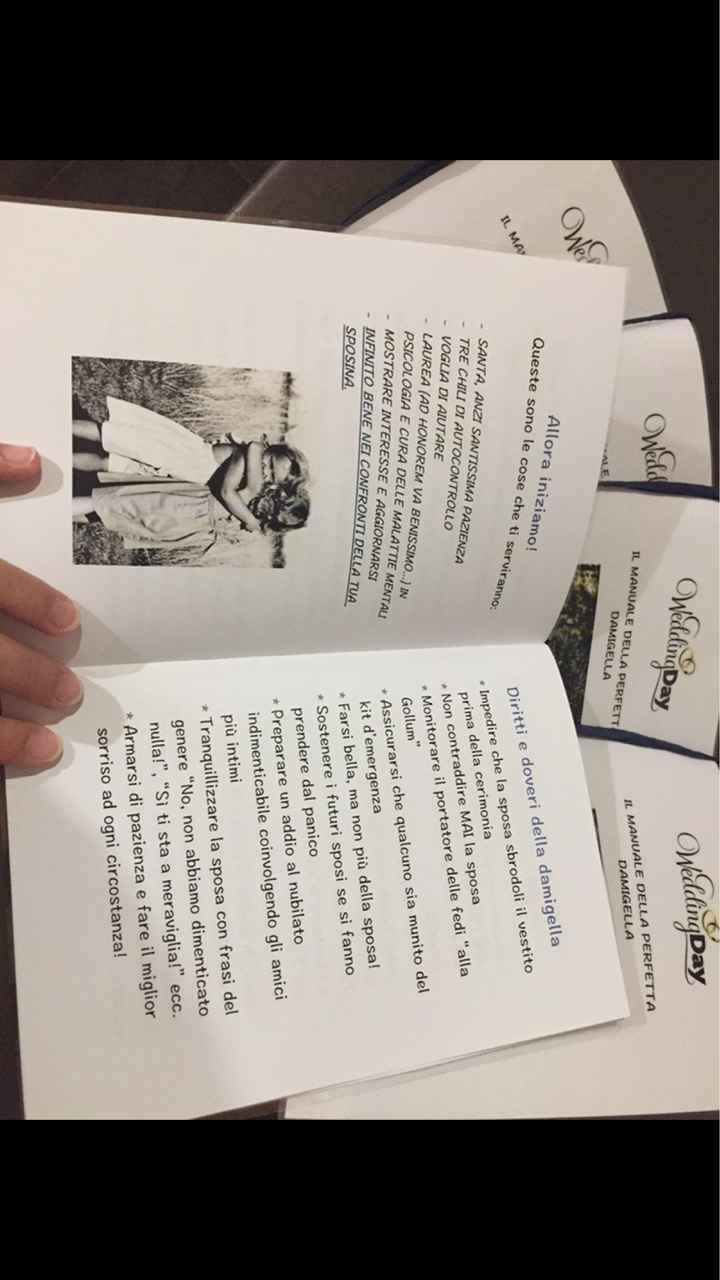 Allora iniziamo!
Queste sono le cose che ti serviranno:
- SANTA, ANZI SANTISSIMA PAZIENZA
- TRE CHILI DI AUTOCONTROLLO
- VOGLIA DI AIUTARE
- LAUREA (AD HONOREM VA BENISSIMO...) IN
PSICOLOGIA E CURA DELLE MALATTIE MENTALI
- MOSTRARE INTERESSE E AGGIORNARSI
- INFINITO BENE NEI CONFRONTI DELLA TUA
SPOSINA.
Diritti e doveri della damigella
* Impedire che la sposa sbrodoli il vestito
prima della cerimonia
* Non contraddire MAI la sposa
* Monitorare il portatore delle fedi "alla
Gollum"
* Assicurarsi che qualcuno sia munito del
kit d'emergenza
* Farsi bella, ma non più della sposa!
* Sostenere i futuri sposi se si fanno
prendere dal panico
* Preparare un addio al nubilato
indimenticabile coinvolgendo gli amici
più intimi
* Tranquillizzare la sposa con frasi del
genere "No, non abbiamo dimenticato
nulla!", "Sì ti sta a meraviglia!" ecc.
* Armarsi di pazienza e fare il miglior
sorriso ad ogni circostanza!
Wed
IL MA
Wedd
ALE
WeddingDay
IL MANUALE DELLA PERFETT
DAMIGELLA
WeddingDay
IL MANUALE DELLA PERFETTA
DAMIGELLA